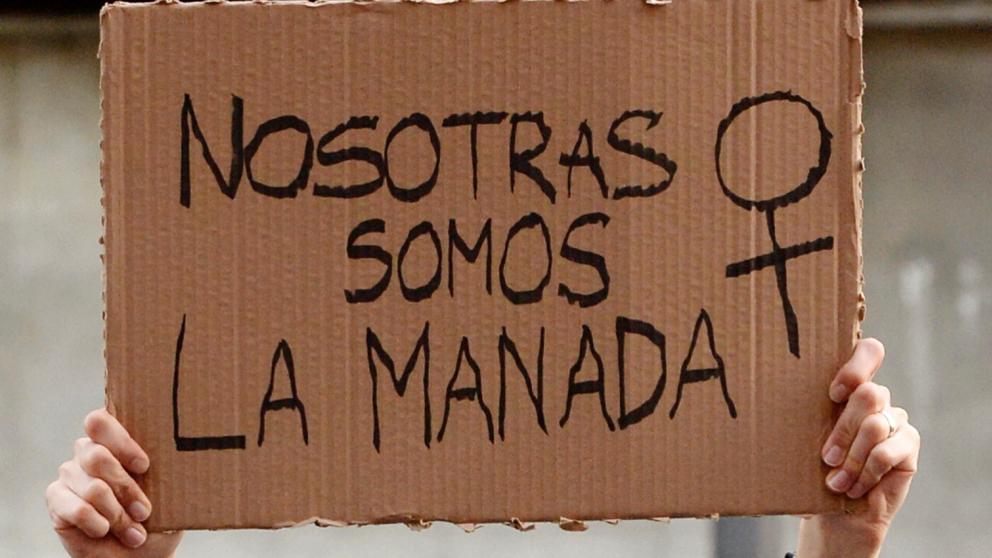 NOSOTRAS ♀
SOMOS
LA MANADA